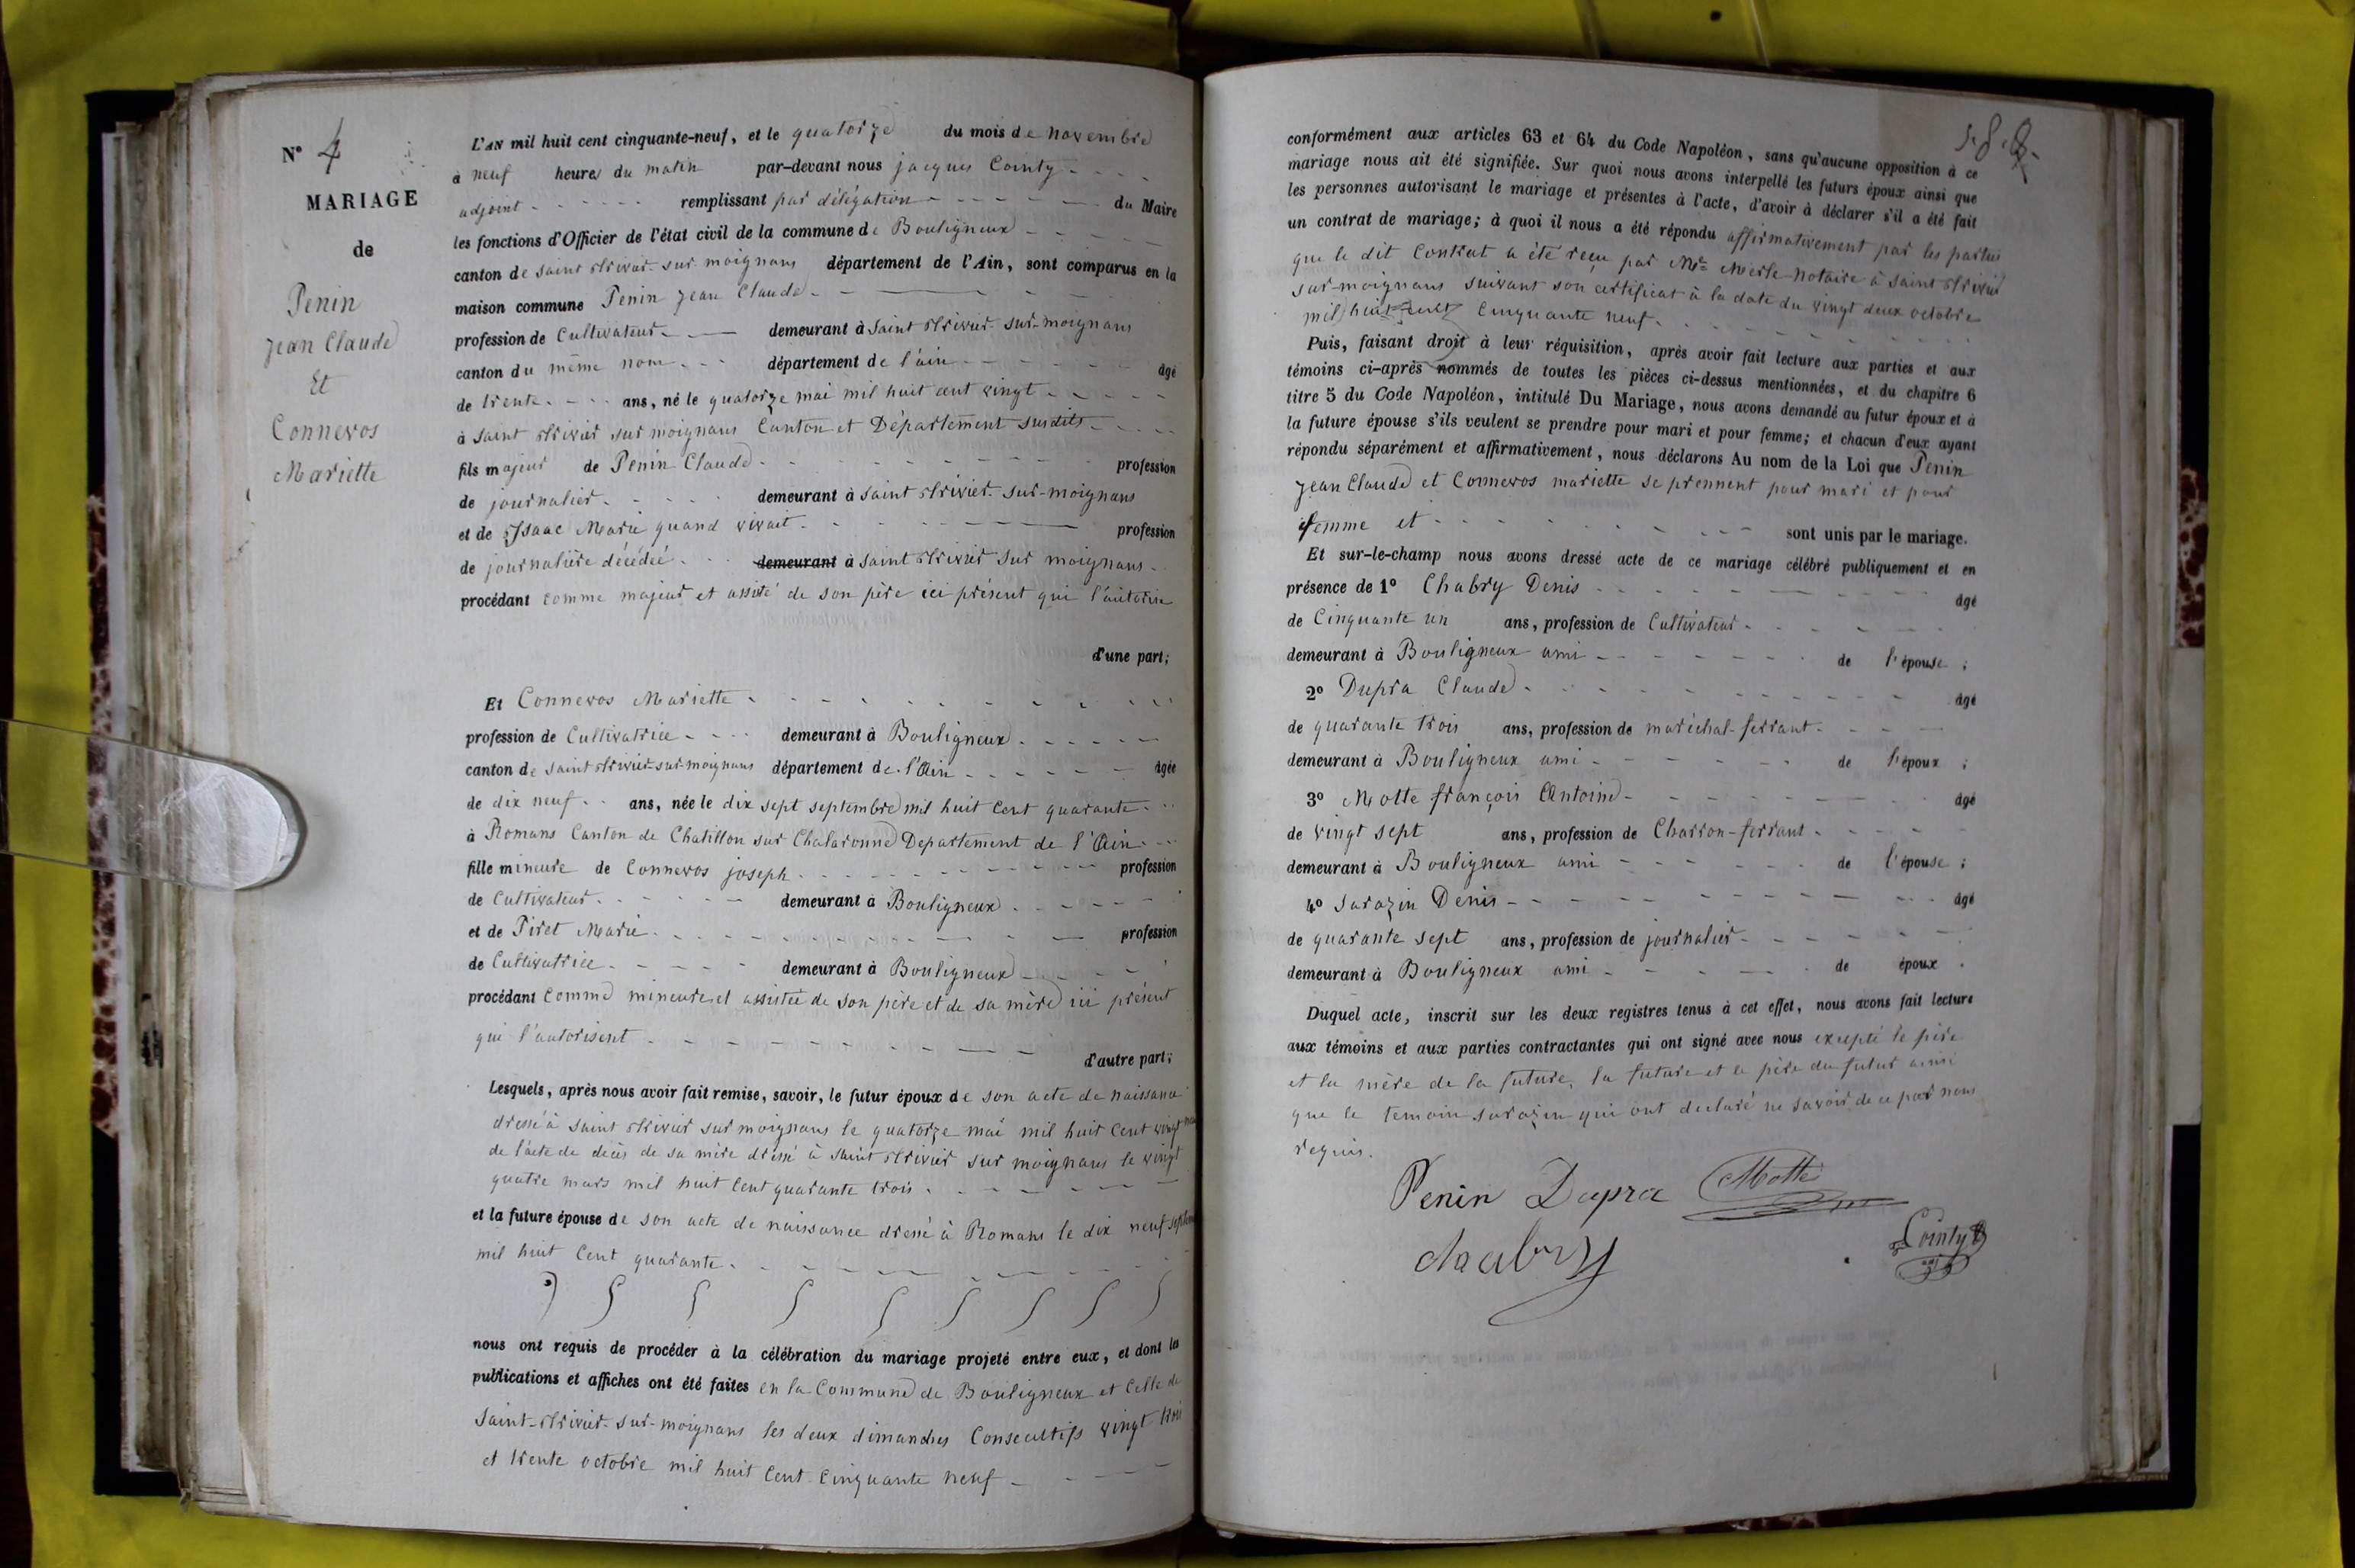 N° 4
MARIAGE
de
Penin
Jean Claude
Et
Connevos
Mariette
L'AN mil huit cent cinquante-neuf, et le quatorze du mois de novembre
à neuf heures du matin par-devant nous jacques Cointy
adjoint remplissant par délégation du Maire
les fonctions d'Officier de l'état civil de la commune de Bouligneux
canton de saint trivier-sur-moignans département de l'Ain, sont comparus en la
maison commune Penin Jean Claude
profession de Cultivateur demeurant à saint trivier-sur-moignans
canton du même nom département de l'ain âgé
de trente ans, né le quatorze mai mil huit cent vingt
à saint trivier sur moignans Canton et Département susdits
fils majeur de Penin Claude profession
de journalier demeurant à saint trivier-sur-moignans
et de Isaac Marie quand vivait profession
de journalière décédée demeurant à saint trivier sur moignans
procédant comme majeur et assisté de son père ici présent qui l'autorise
d'une part;
Et Connevos Mariette
profession de Cultivatrice demeurant à Bouligneux
canton de saint trivier-sur-moignans département de l'Ain âgée
de dix neuf ans, née le dix sept septembre mil huit cent quarante
à Romans Canton de Chatillon sur Chalaronne Departement de l'Ain
fille mineure de Connevos joseph profession
de Cultivateur demeurant à Bouligneux
et de Piret Marie profession
de Cultivatrice demeurant à Bouligneux
procédant comme mineure et assistée de son père et de sa mère ici présent
qui l'autorisent
d'autre part;
Lesquels, après nous avoir fait remise, savoir, le futur époux de son acte de naissance
dressé à saint trivier sur moignans le quatorze mai mil huit cent vingt
de l'acte de décès de sa mère dressé à saint trivier sur moignans le vingt
quatre mars mil huit cent quarante trois
et la future épouse de son acte de naissance dressé à Romans le dix neuf
mil huit cent quarante
nous ont requis de procéder à la célébration du mariage projeté entre eux, et dont les
publications et affiches ont été faites en la Commune de Bouligneux et Celle de
saint-trivier-sur-moignans les deux dimanches Consecutifs vingt trois
et trente octobre mil huit cent cinquante neuf
conformément aux articles 63 et 64 du Code Napoléon, sans qu'aucune opposition à ce
mariage nous ait été signifiée. Sur quoi nous avons interpellé les futurs époux ainsi que
les personnes autorisant le mariage et présentes à l'acte, d'avoir à déclarer s'il a été fait
un contrat de mariage; à quoi il nous a été répondu affirmativement par les parties
que le dit Contrat a été reçu par Me Merle Notaire à saint trivier
sur-moignans suivant son certificat à la date du vingt deux octobre
mil huit cent Cinquante neuf
Puis, faisant droit à leur réquisition, après avoir fait lecture aux parties et aux
témoins ci-après nommés de toutes les pièces ci-dessus mentionnées, et du chapitre 6
titre 5 du Code Napoléon, intitulé Du Mariage, nous avons demandé au futur époux et à
la future épouse s'ils veulent se prendre pour mari et pour femme; et chacun d'eux ayant
répondu séparément et affirmativement, nous déclarons Au nom de la Loi que Penin
Jean Claude et Connevos mariette se prennent pour mari et pour
femme et sont unis par le mariage.
Et sur-le-champ nous avons dressé acte de ce mariage célébré publiquement et en
présence de 1° Chabry Denis âgé
de Cinquante un ans, profession de Cultivateur
demeurant à Bouligneux ami de l'épouse;
2° Dupra Claude âgé
de quarante trois ans, profession de maréchal-ferrant
demeurant à Bouligneux ami de l'époux;
3° Motte françois Antoine âgé
de vingt sept ans, profession de Charron-ferrant
demeurant à Bouligneux ami de l'épouse;
4° Sarazin Denis âgé
de quarante sept ans, profession de journalier
demeurant à Bouligneux ami de époux.
Duquel acte, inscrit sur les deux registres tenus à cet effet, nous avons fait lecture
aux témoins et aux parties contractantes qui ont signé avec nous excepté le père
et la mère de la future, la future et le père du futur ainsi
que le temoin sarazin qui ont declaré ne savoir de ce par nous
requis.
Penin Dupra Motte
chabry Cointy